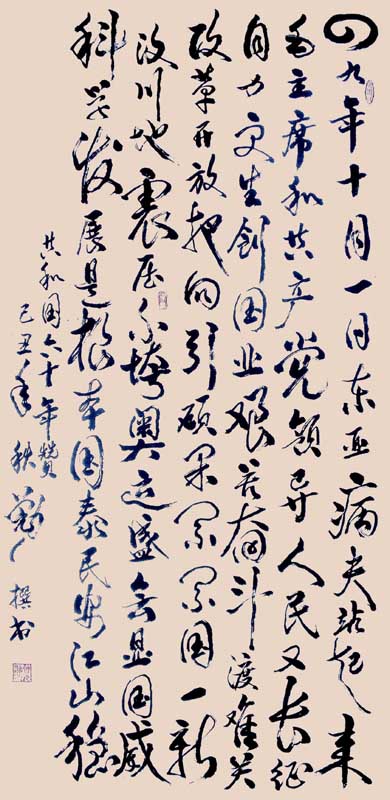 四九年十月一日东亚病夫站起来
毛主席和共产党领导人民又长征
自力更生创国业艰苦奋斗渡难关
改革开放把向引硕果累累国一新
汶川地震压不垮奥运盛会显国威
科学发展是根本国泰民安江山稳
共和国六十年赞
己丑年秋 撰书